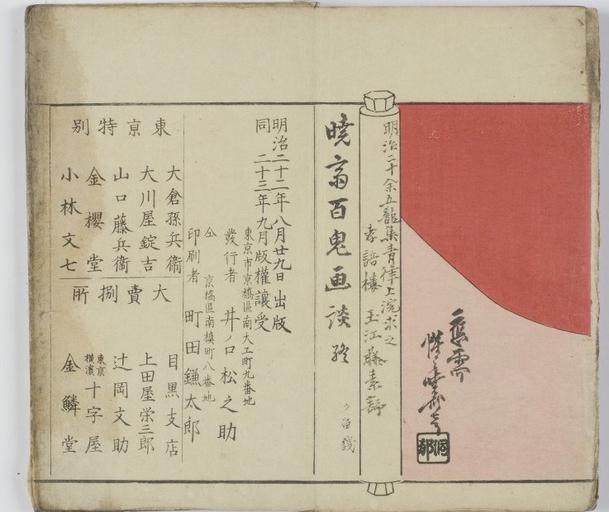 應需
明治二十余五龍集青律上浣求之
孝語樓 玉江藤素
暁斎百鬼画談 終
明治二十二年八月廿九日出版
同 二十三年九月版權讓受
東京市京橋區南大工町九番地
發行者 井ノ口松之助
仝 京橋區南槇町八番地
印刷者 町田鎌太郎
東京特別大賣捌所
大倉孫兵衛
大川屋錠吉
山口藤兵衞
金櫻堂
小林文七
目黒支店
上田屋栄三郎
辻岡文助
東京
横濱 十字屋
金鱗堂